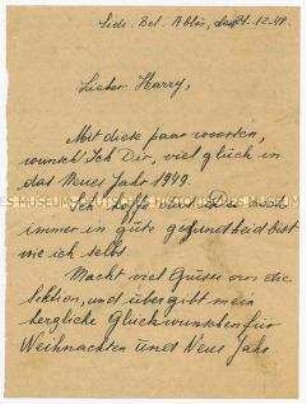 Side. Bel. Abbes, 21-12-48.
Lieber Harry,
Mit diese paar woorten,
wunsch Ich Dir, viel glück in
das Neues Jahr 1949.
Ich hoffe das Du noch
immer in gute gesundheid bist
wie ich selbst.
Macht viel Grüsse an die
sektion, und übergibt mein
herzliche Glückwunschen für
Weihnachten und Neue Jahr